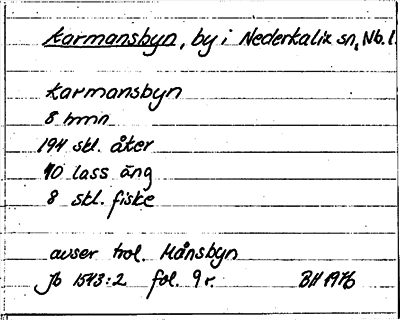 Karmansbyn, by i Nederkalix sn, Nb.l.
Karmansbyn
8 hmn
194 skl. åker
70 lass äng
8 skl. fiske
avser trol. Månsbyn
Jb 1543:2 fol. 9 r. BH 1976